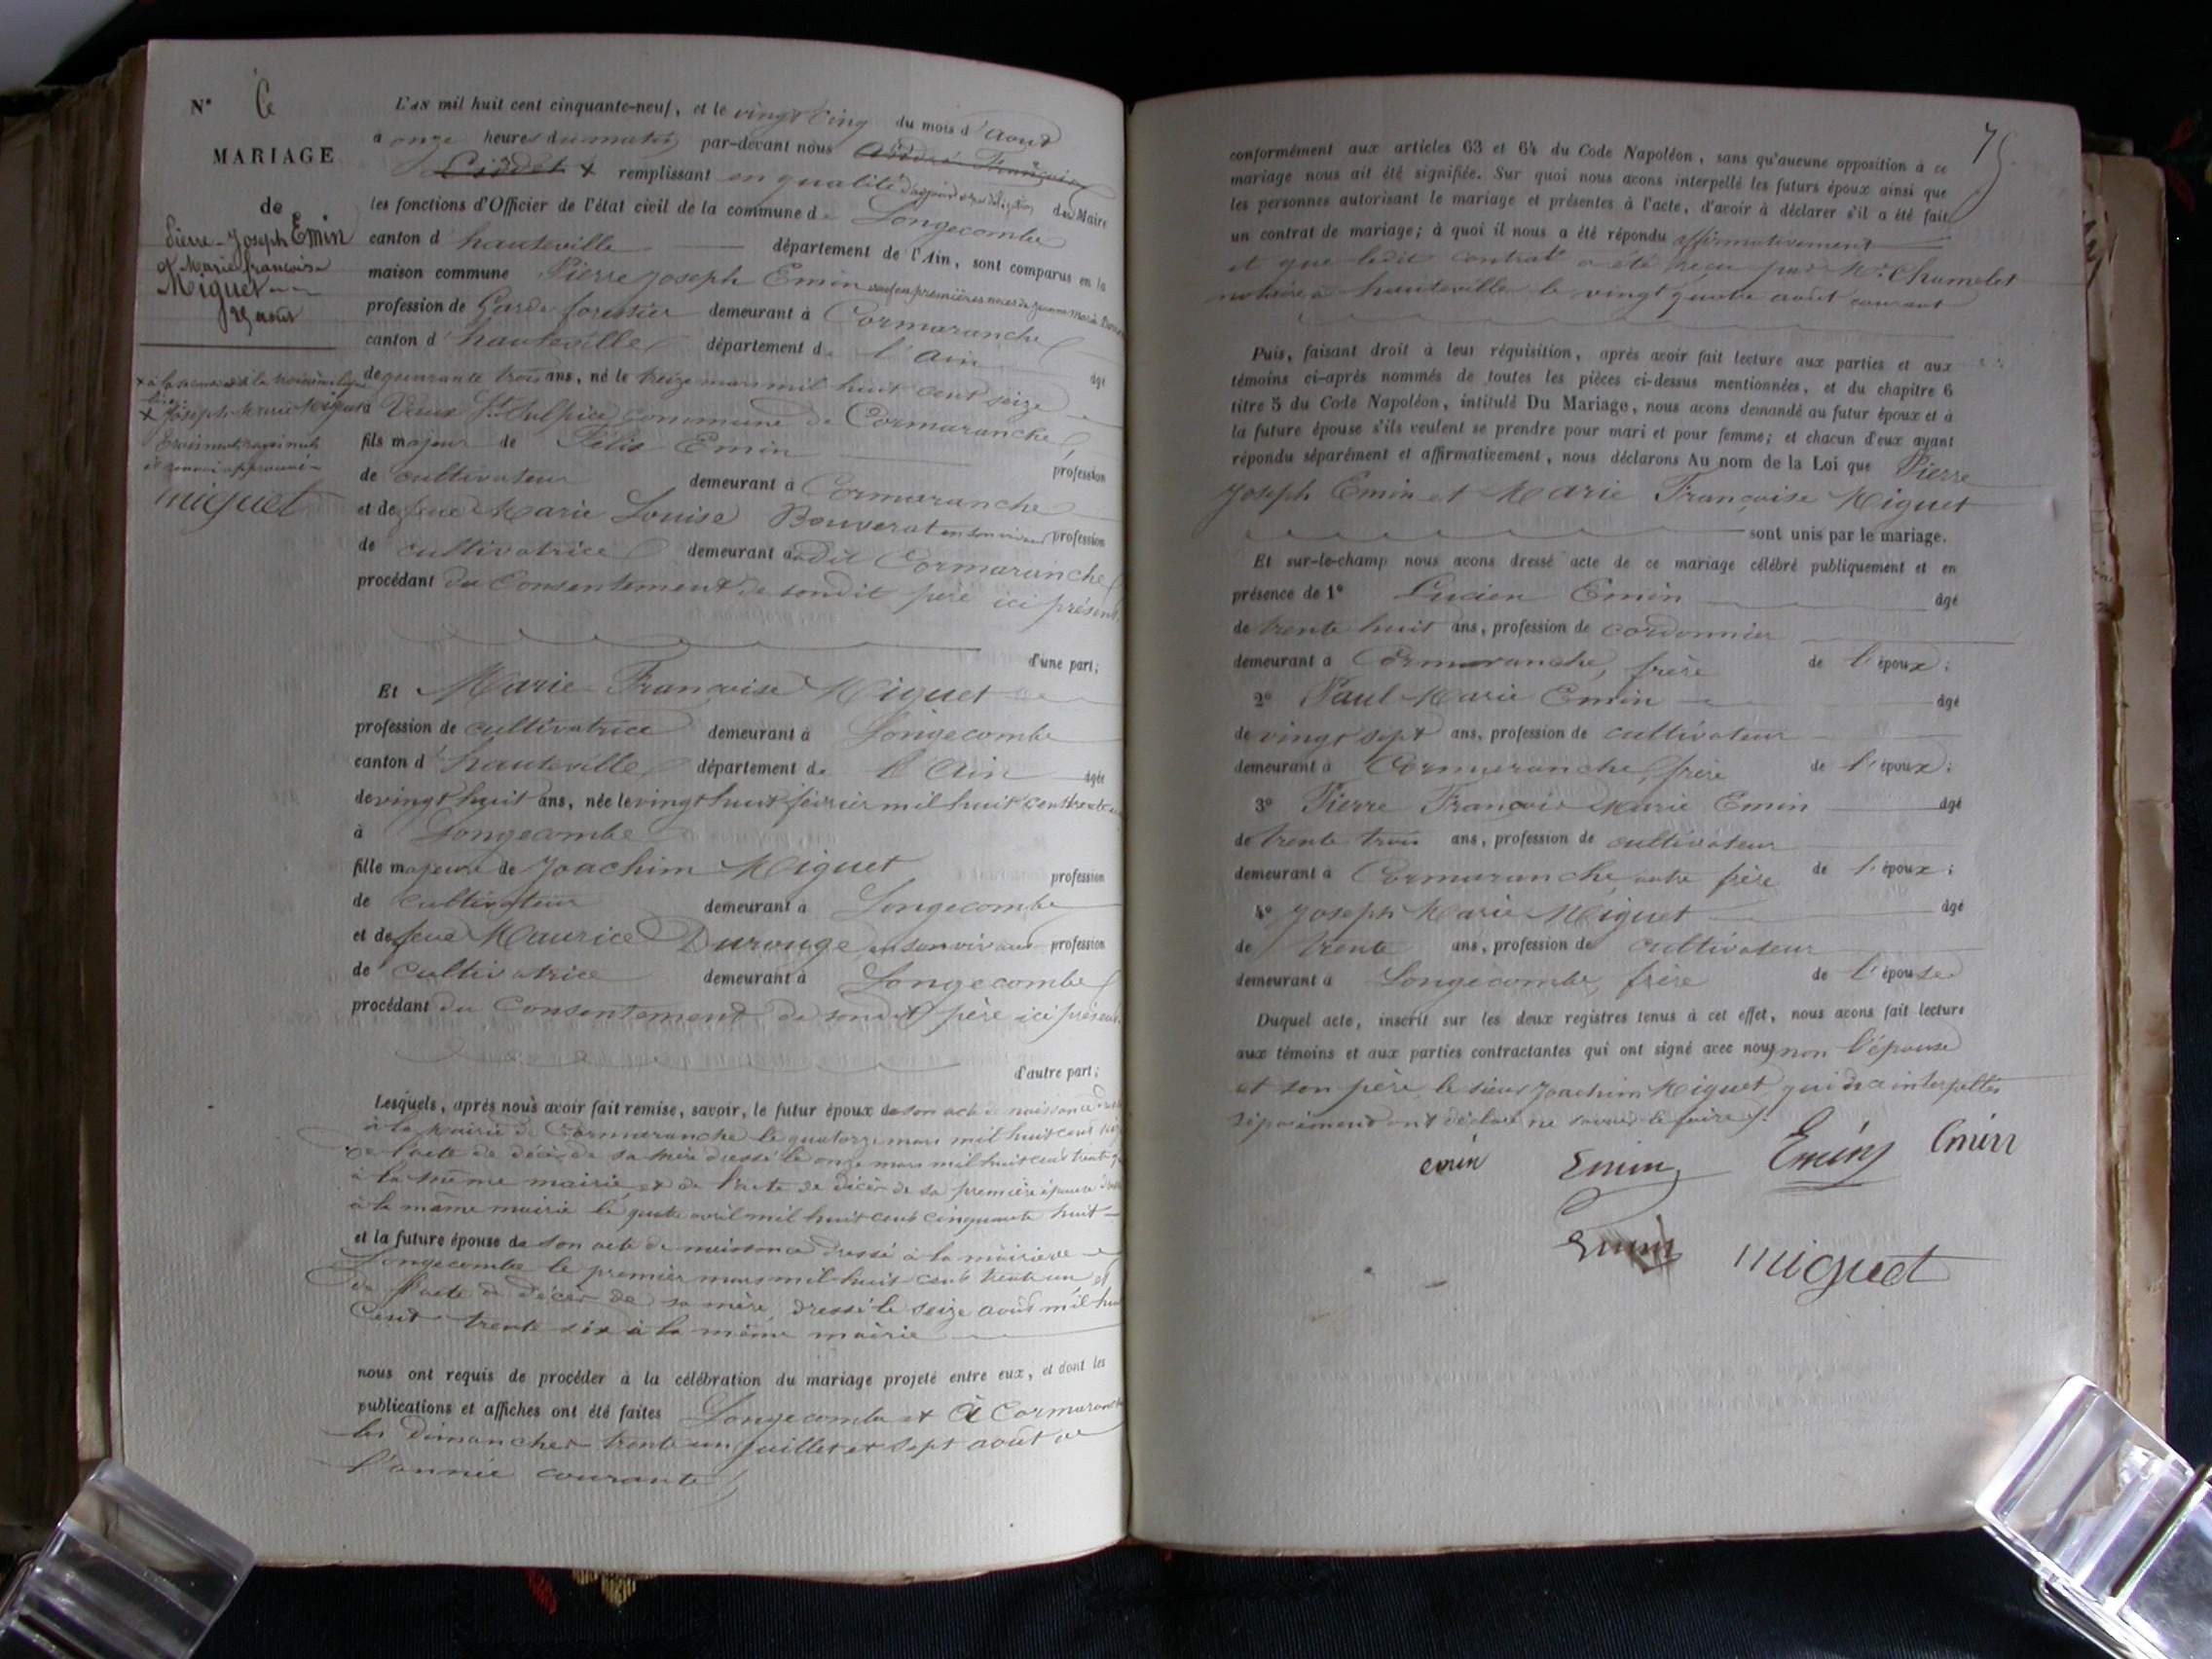 N° 6
MARIAGE
de
Pierre-Joseph Emin
& Marie françoise
Miguet
25 août
x Joseph Marie Miguet
trois mots rayés nuls
et renvoi approuvé
miguet
L'AN mil huit cent cinquante-neuf, et le vingt cinq du mois d'Aout
à onze heures du matin par-devant nous André François
x remplissant en qualité d'adjoint du Maire
les fonctions d'Officier de l'état civil de la commune de Longecombe
canton d'hauteville département de l'Ain, sont comparus en la
maison commune Pierre Joseph Emin veuf en premières noces de Jeanne Marie
profession de Garde forestier demeurant à Cormaranche
canton d'hauteville département de l'Ain âgé
de quarante trois ans, né le treize mars mil huit cent seize
à Vaux St Sulpice commune de Cormaranche
fils majeur de Félix Emin profession
de cultivateur demeurant à Cormaranche
et de feue Marie Louise Bouverat en son vivant profession
de cultivatrice demeurant audit Cormaranche
procédant du Consentement de sondit père ici présent
d'une part;
Et Marie Françoise Miguet
profession de cultivatrice demeurant à Longecombe
canton d'hauteville département de l'Ain âgée
de vingt huit ans, née le vingt huit février mil huit cent trente un
à Longecombe
fille majeure de Joachim Miguet profession
de cultivateur demeurant à Longecombe
et de feue Maurice Durouge en son vivant profession
de cultivatrice demeurant à Longecombe
procédant du Consentement de sondit père ici présent
d'autre part;
Lesquels, après nous avoir fait remise, savoir, le futur époux de son acte de naissance
à la Mairie de Cormaranche le quatorze mars mil huit cent
de l'acte de décès de sa mère dressé le onze mars mil huit cent trente
à la même mairie, et de l'acte de décès de sa première épouse
à la même mairie le quatre avril mil huit cent cinquante huit
et la future épouse de son acte de naissance dressé à la mairie de
Longecombe le premier mars mil huit cent trente un et
de l'acte de décès de sa mère, dressé le seize août mil huit
Cent trente six à la même mairie
nous ont requis de procéder à la célébration du mariage projeté entre eux, et dont les
publications et affiches ont été faites Longecombe et à Cormaranche
les dimanches trente un juillet et sept août de
l'année courante
75
conformément aux articles 63 et 64 du Code Napoléon, sans qu'aucune opposition à ce
mariage nous ait été signifiée. Sur quoi nous avons interpellé les futurs époux ainsi que
les personnes autorisant le mariage et présentes à l'acte, d'avoir à déclarer s'il a été fait
un contrat de mariage; à quoi il nous a été répondu affirmativement
et que ledit contrat a été reçu par Me Chamelet
notaire à hauteville le vingt quatre août courant
Puis, faisant droit à leur réquisition, après avoir fait lecture aux parties et aux
témoins ci-après nommés de toutes les pièces ci-dessus mentionnées, et du chapitre 6
titre 5 du Code Napoléon, intitulé Du Mariage, nous avons demandé au futur époux et à
la future épouse s'ils veulent se prendre pour mari et pour femme; et chacun d'eux ayant
répondu séparément et affirmativement, nous déclarons Au nom de la Loi que Pierre
Joseph Emin et Marie Françoise Miguet
sont unis par le mariage.
Et sur-le-champ nous avons dressé acte de ce mariage célébré publiquement et en
présence de 1° Lucien Emin âgé
de trente huit ans, profession de cordonnier
demeurant à Cormaranche, frère de l'époux;
2° Paul Marie Emin âgé
de vingt sept ans, profession de cultivateur
demeurant à Cormaranche, frère de l'époux;
3° Pierre François Marie Emin âgé
de trente trois ans, profession de cultivateur
demeurant à Cormaranche, autre frère de l'époux;
4° Joseph Marie Miguet âgé
de trente ans, profession de cultivateur
demeurant à Longecombe, frère de l'épouse
Duquel acte, inscrit sur les deux registres tenus à cet effet, nous avons fait lecture
aux témoins et aux parties contractantes qui ont signé avec nous, non l'épouse
et son père, le sieur Joachim Miguet, qui de ce interpellés
séparément ont déclaré ne savoir le faire
emin Emin Emin Emin
Emin miguet